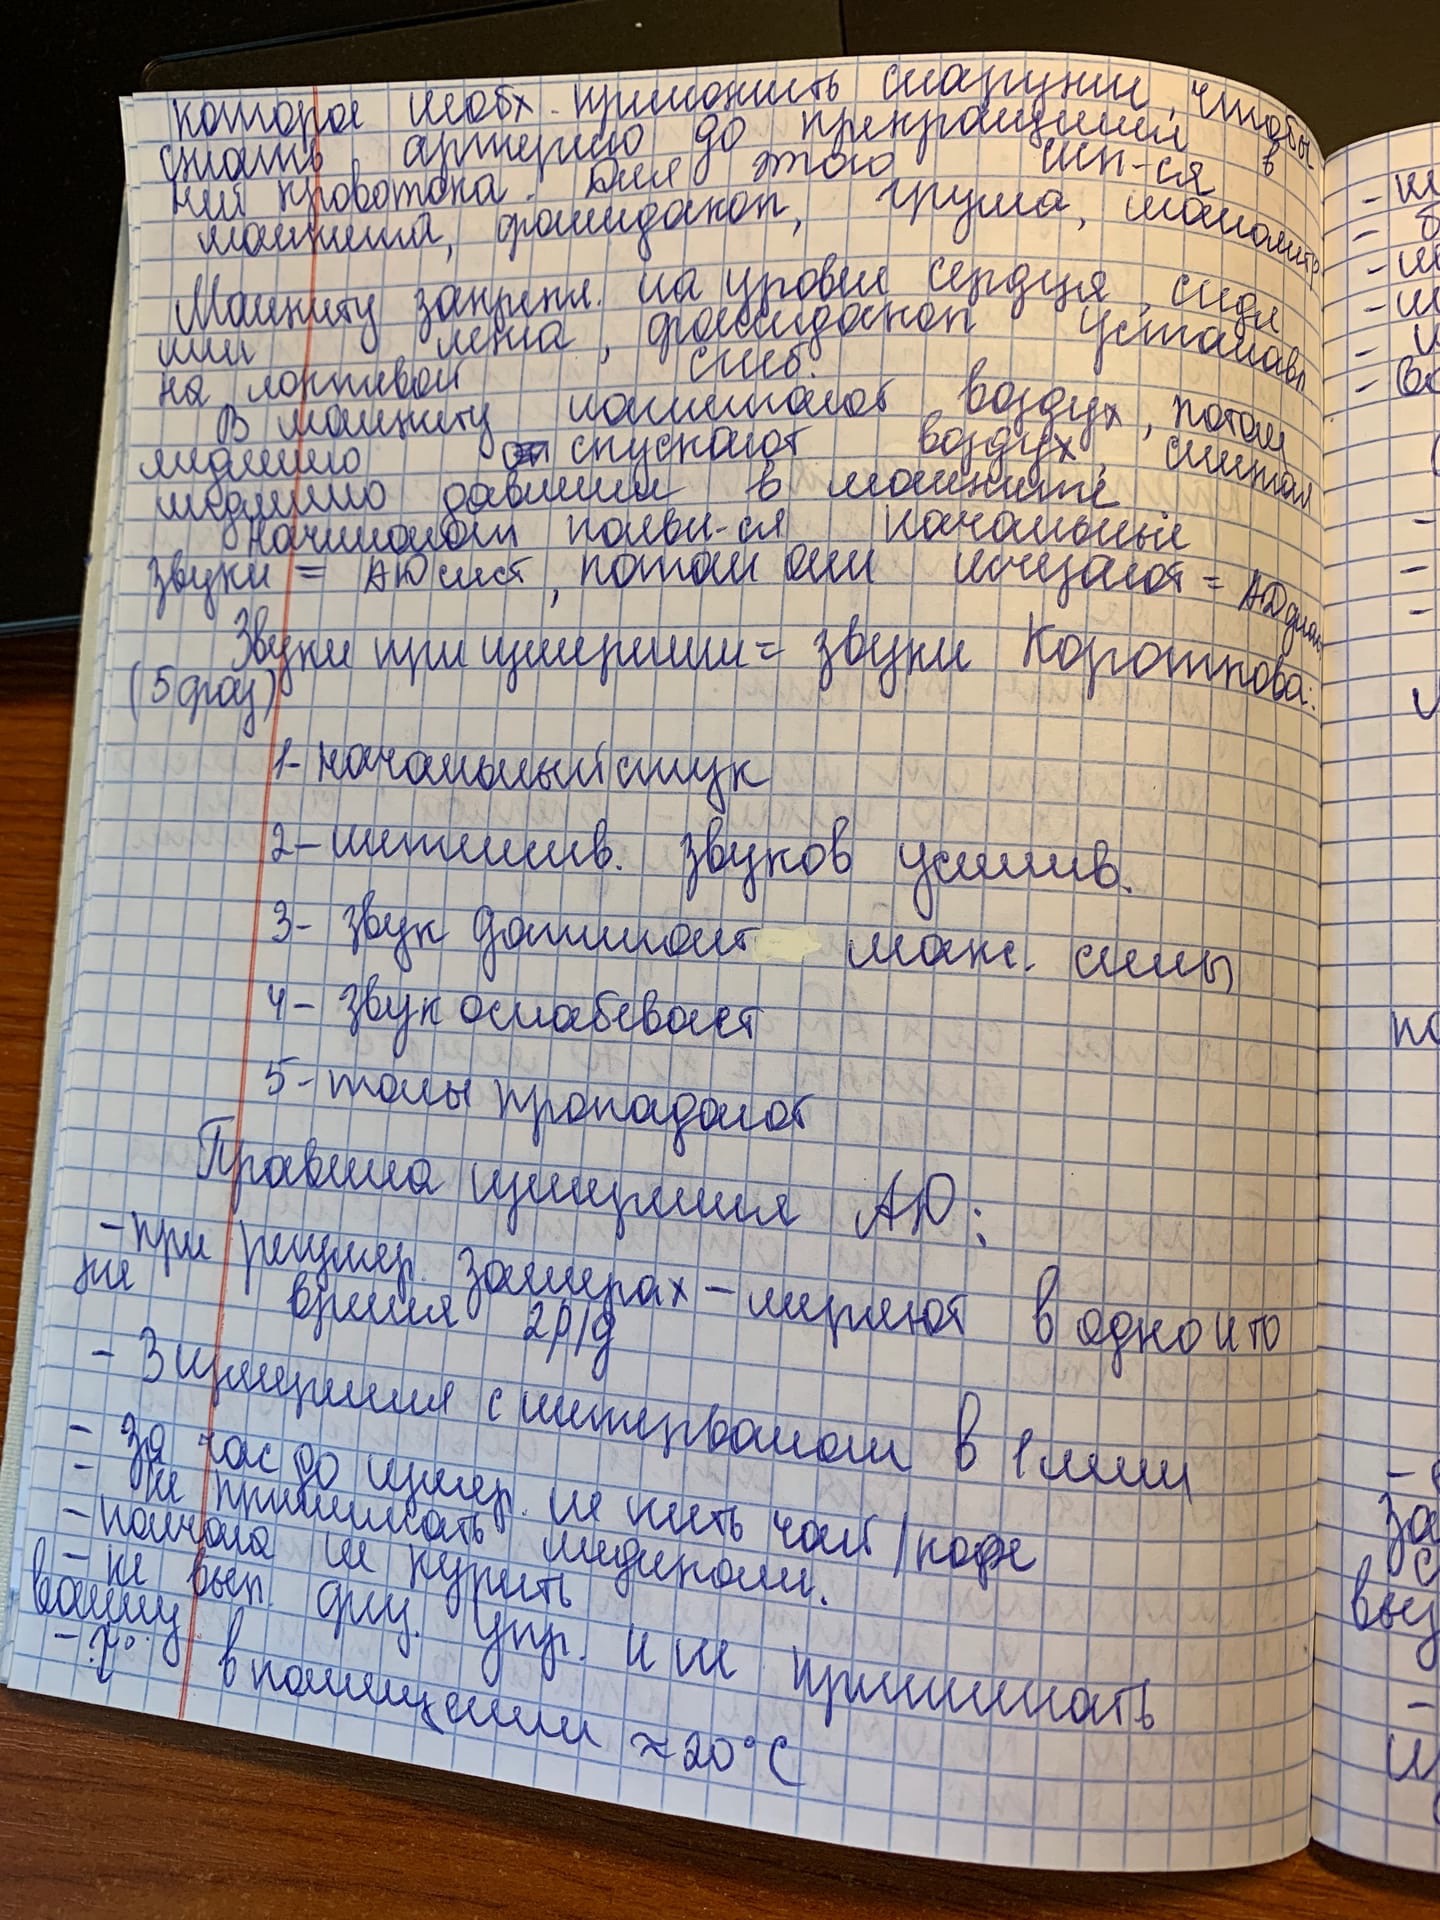 которое необх. приложить снаружи, чтобы
сжать артерию до прекращения в
ней кровотока. Для этого исп-ся
манжета, фонендоскоп, груша, манометр
Манжету закрепл. на уровне сердца, сидя
или лежа, фонендоскоп устанавл
на локтевой сгиб.
В манжету нагнетают воздух, потом
медленно спускают воздух, снижая
медленно давление в манжете
Начинают появл-ся начальные
звуки = АД сист, потом они исчезают = АД диас
Звуки при измерении = звуки Короткова:
(5 фаз)
1- начальный стук
2- интенсив. звуков усилив.
3- звук достигает макс. силы
4- звук ослабевает
5- тоны пропадают
Правила измерения АД:
- при регуляр. замерах - меряют в одно и то
же время 2р/д
- 3 измерения с интервалом в 1 мин
- за час до измер. не пить чай/кофе
- не принимать медикам.
- полчаса не курить
- не вып. физ. упр. и не принимать
ванну
- t° в помещении ≈ 20°C
- не
- б